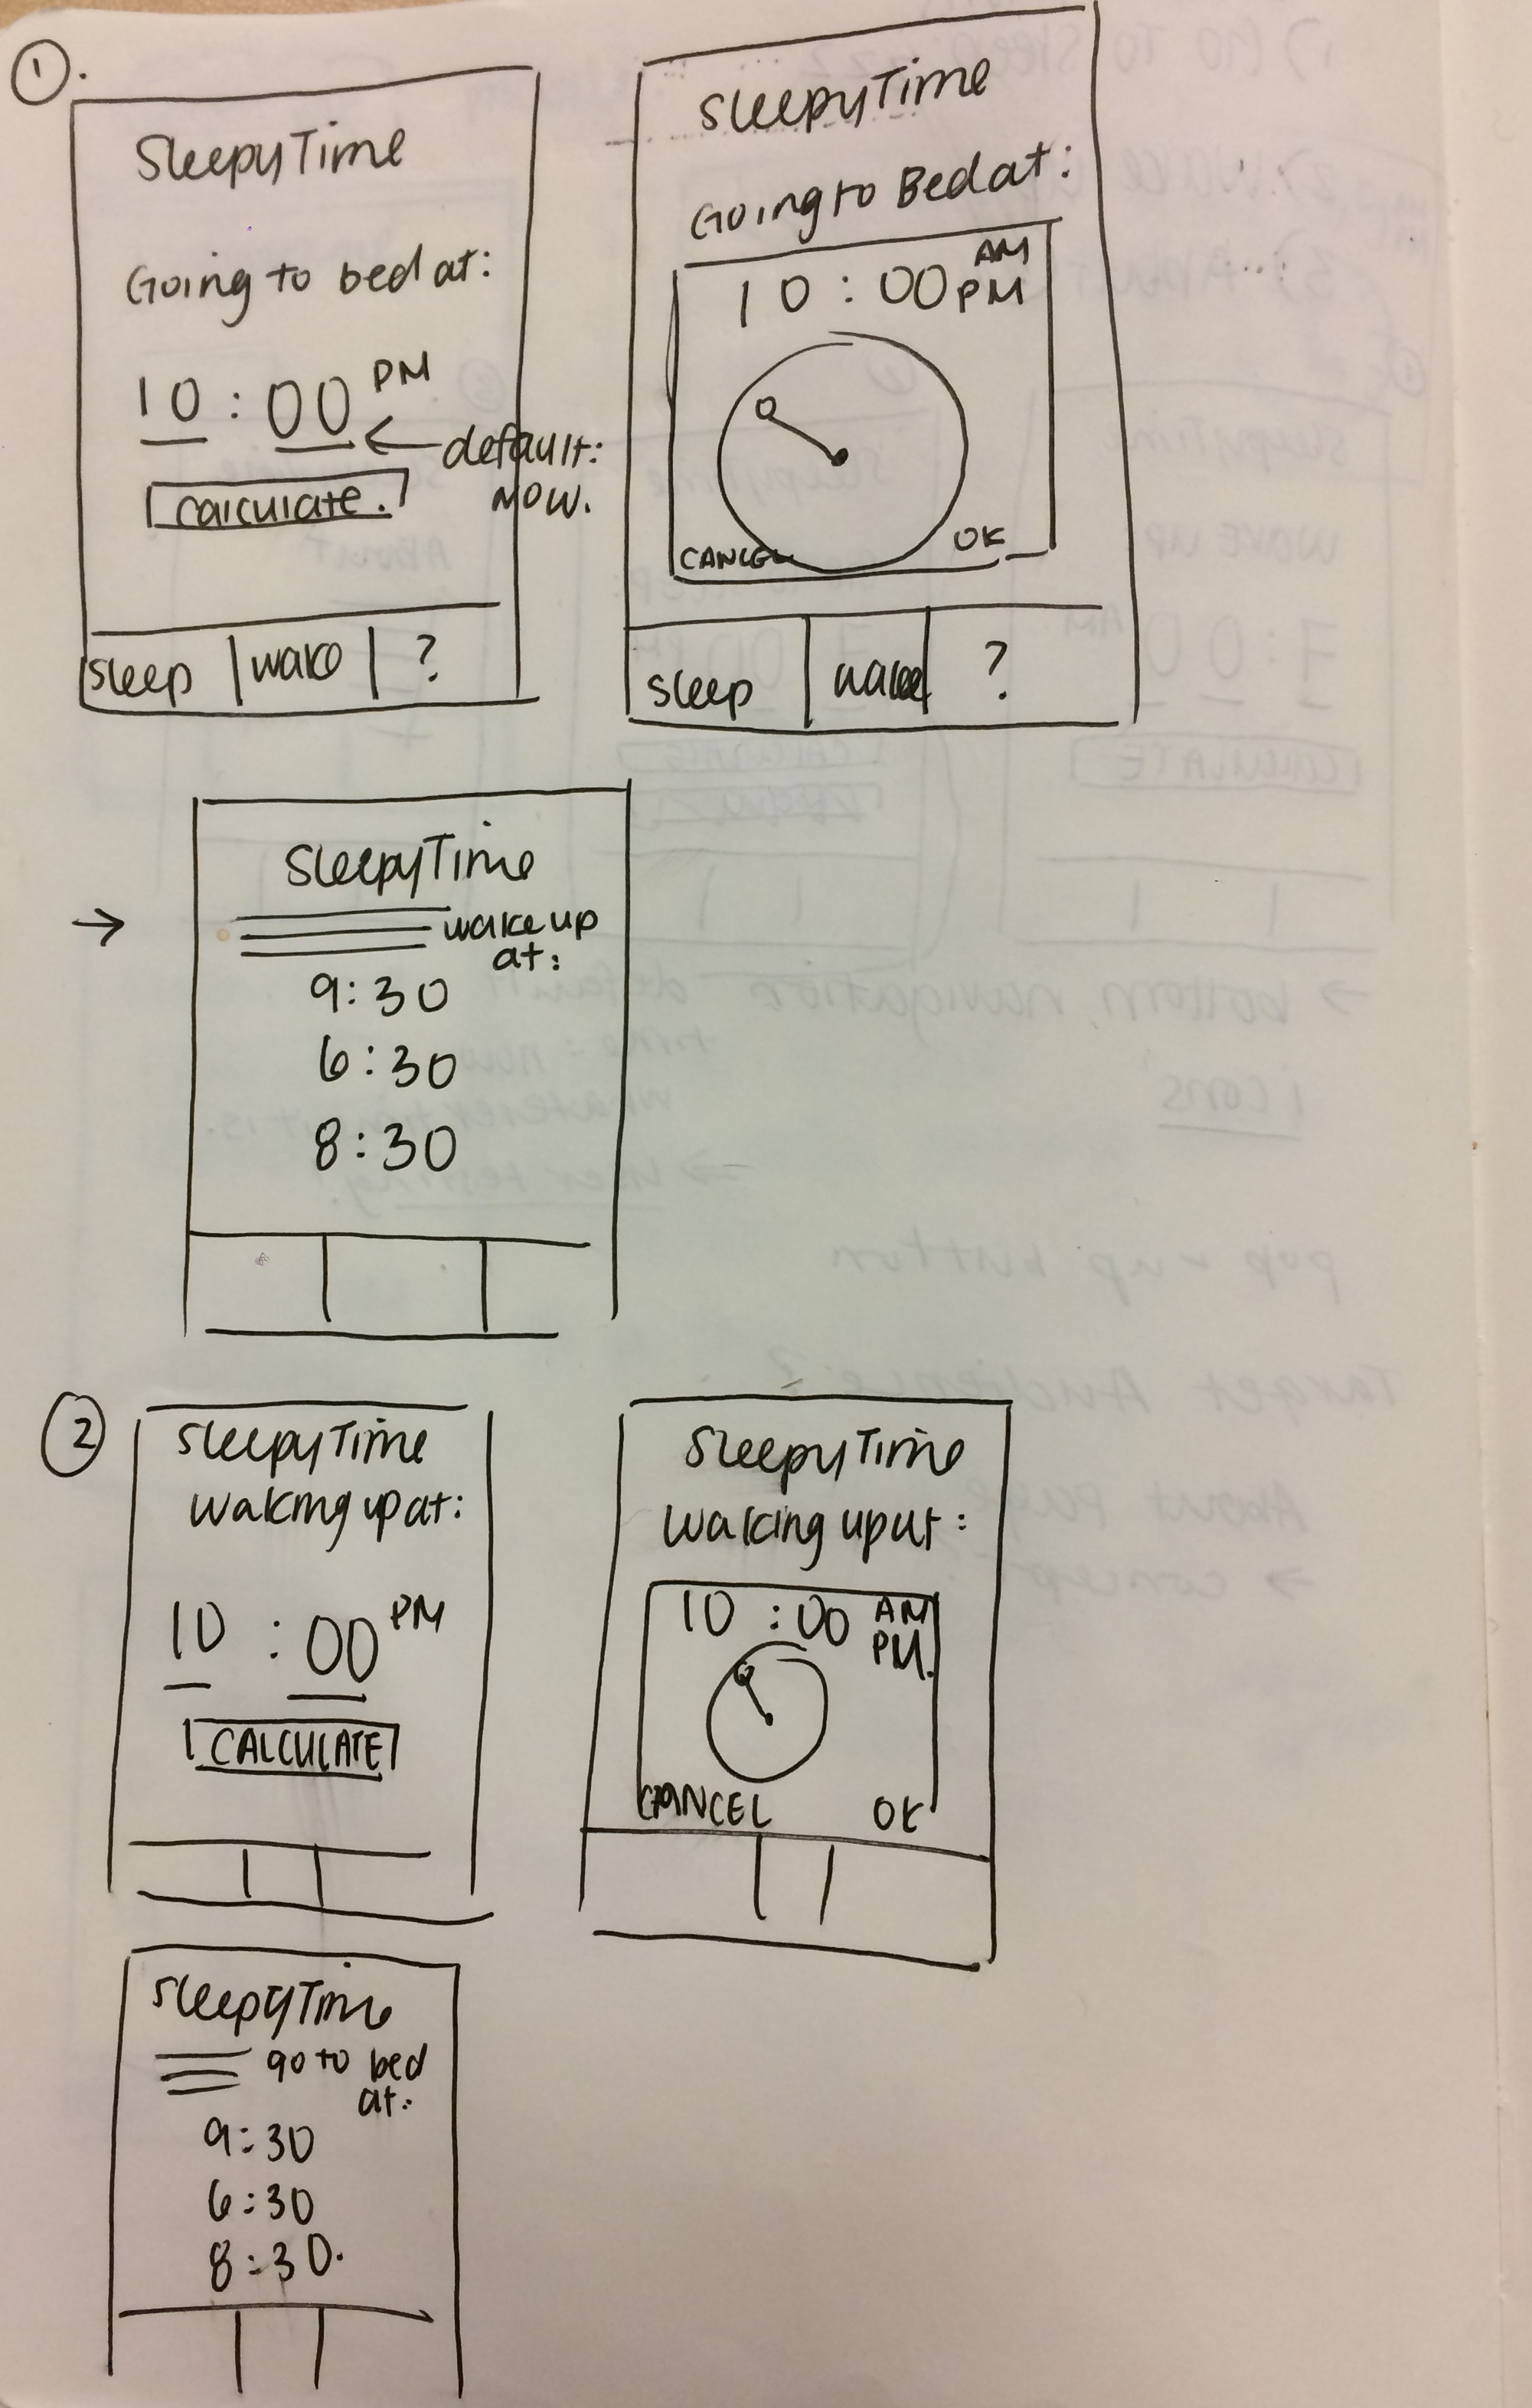 1.
SleepyTime
Going to bed at:
10:00 PM
← default:
now.
calculate.
sleep | wake | ?
SleepyTime
Going to Bed at:
10:00 AM
PM
CANCEL OK
sleep ?
→
SleepyTime
wake up
at:
9:30
6:30
8:30
2
SleepyTime
waking up at:
10:00 PM
CALCULATE
SleepyTime
waking up at:
10:00 AM
PM.
CANCEL OK
SleepyTime
go to bed
at:
9:30
6:30
8:30.